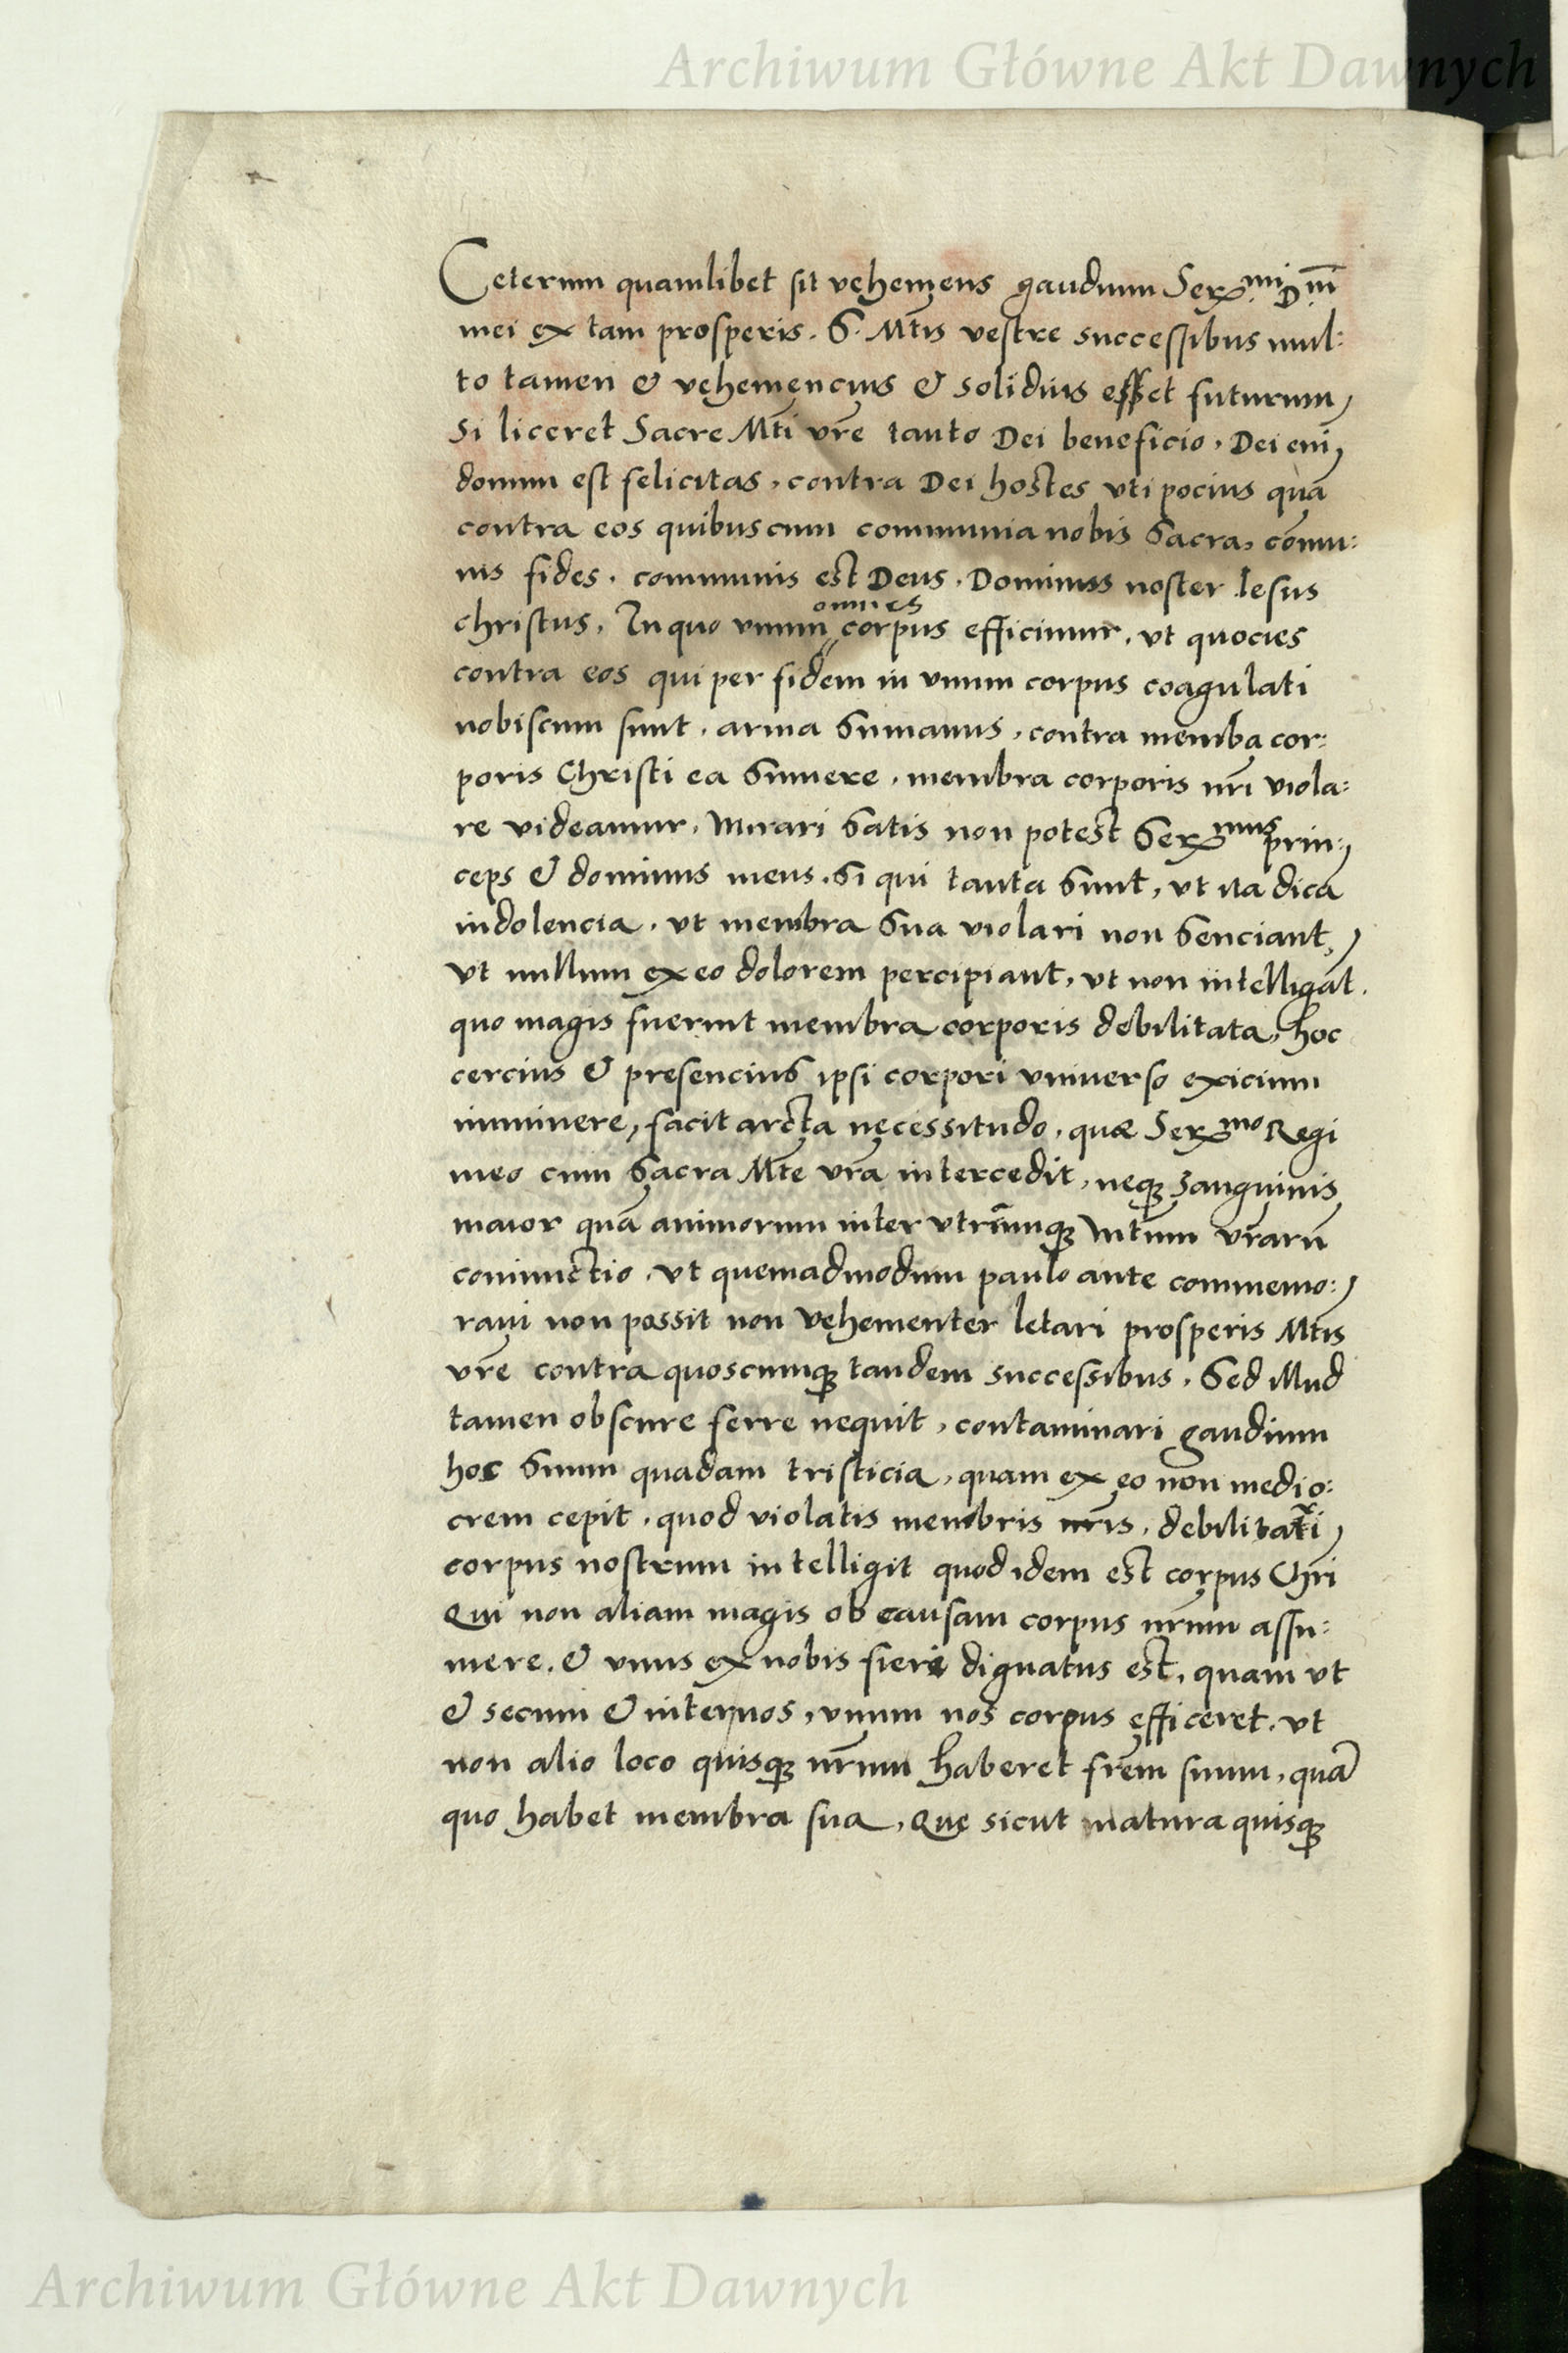 Archiwum Główne Akt Dawnych
Ceterum quamlibet sit vehemens gaudium Serᵐⁱ Dnī
mei ex tam prosperis. S. Mtīs vestre successibus mul:
to tamen & vehemencius & solidius esset futurum,
Si liceret Sacre Mtī vrē tanto Dei beneficio, Dei enī
donum est felicitas, contra Dei hostes uti pocius quā
contra eos quibuscum communia nobis Sacra, cōmu:
nis fides, communis est Deus, Dominus noster Iesus
christus, In quo vnum omnes corpus efficimur, vt quocies
contra eos qui per fidem in vnum corpus coagulati
nobiscum sunt, arma Sumamus, contra memba cor:
poris Christi ea Sumere, membra corporis nrī viola:
re videamur. Mirari Satis non potest Serᵐᵘˢ prin:
ceps & dominus meus. Si qui tanta Sunt, vt ita dicā
indolencia, vt membra Sua violari non Senciant,
Vt nullum ex eo dolorem percipiant, vt non intelligāt.
quo magis fuerint membra corporis debilitata, hoc
cercius & presencius ipsi corpori vniuerso exicium
imminere, facit arcta necessitudo, quæ Serᵐᵒ Regi
meo cum Sacra Mtē vrā intercedit, neqȝ Sanguinis
maior quā animorum inter vtriumqȝ Mtūm vrārū
coniunctio, vt quemadmodum paulo ante commemo:
raui non possit non vehementer letari prosperis Mtīs
vrē contra quoscumqȝ tandem successibus. Sed illud
tamen obscure ferre nequit, contaminari gaudium
hoc Suum quadam tristicia, quam ex eo non medio:
crem cepit, quod violatis membris nrīs, debilitari
corpus nostrum intelligit quod idem est corpus Chrī
Qui non aliam magis ob causam corpus nrūm assu:
mere, & vnus ex nobis fieri dignatus est, quam vt
& secum & inter nos, vnum nos corpus efficeret, vt
non alio loco quisqȝ nrūm haberet frēm suum, quā
quo habet membra sua, Quę sicut natura quisqȝ
Archiwum Główne Akt Dawnych